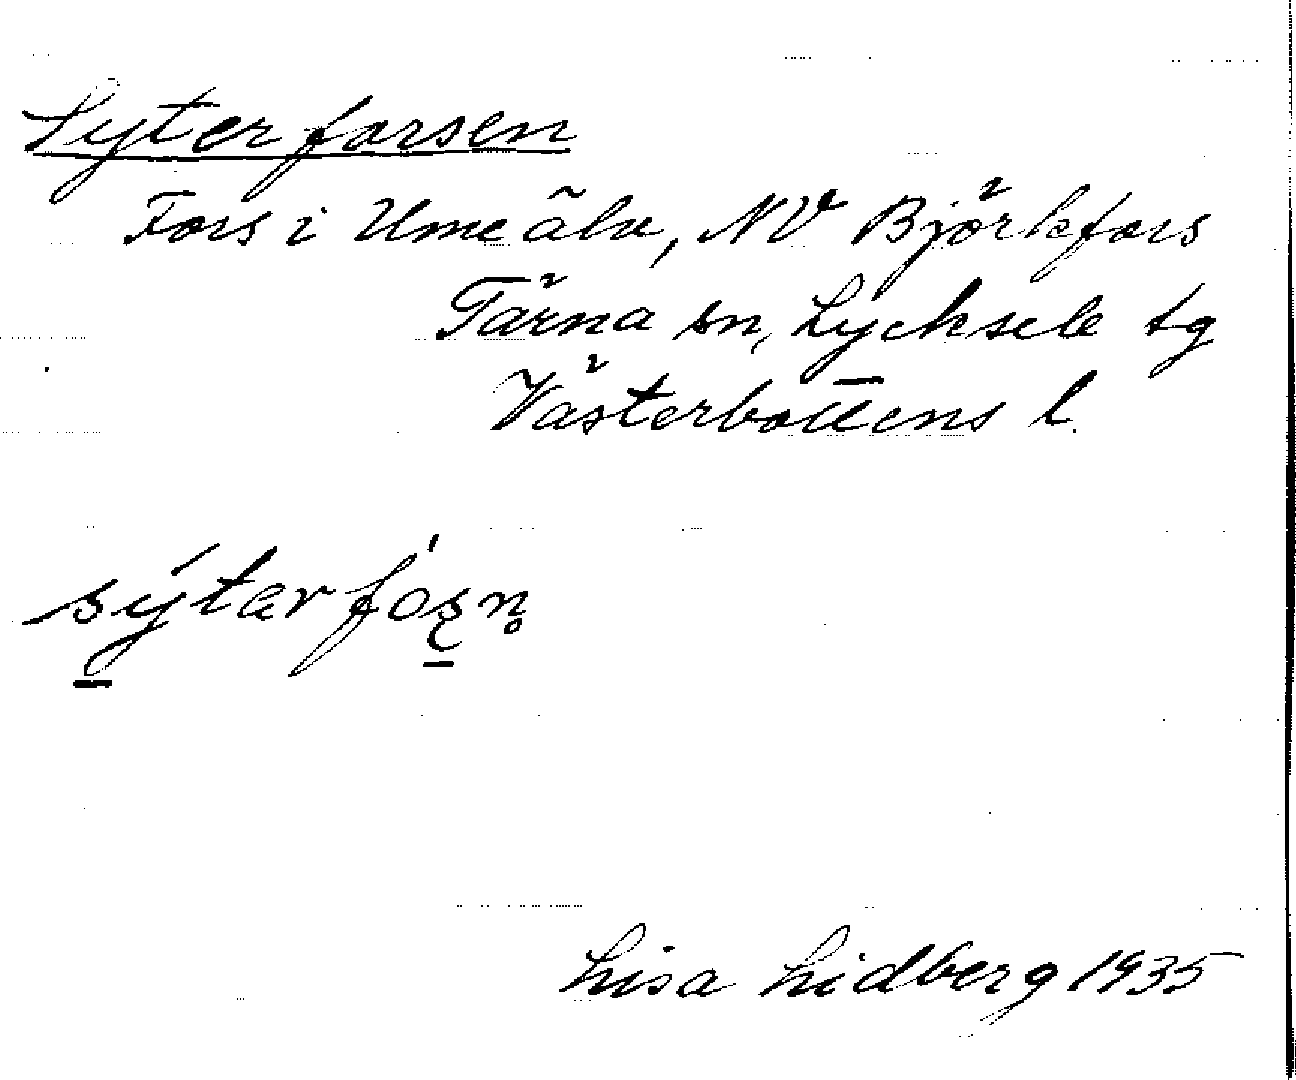 Syterforsen
Fors i Ume älv, NV Björkfors
Tärna sn, Lycksele tg
Västerbottens l.
sýtærfóʂn̥
Lisa Lidberg 1935